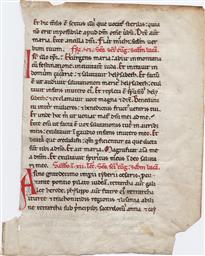 Et hic mensis e sextus illi que uocat sterilis: quia
non erit impossibile apud dm omne Dix aut
maria. Ecce ancilla dni. fiat michi scdm uer
bum tuum.
Exurgens maria abiit in montana
cum festinatione in iuda. Et intrauit in
domum zacharie & salutauit helisabeth. Et
ut audiuit salutatione marie helisabeth. ex
ultauit infans in utero ei. Et repleta e spu sco
helisabeth et exclamauit uoce magna & dix. Benedicta
tu inter mulieres & benedictus fruct uentris tui.
Et unde hoc ut ueniat mat dni mei ad me.
Ecce eni ut facta e uox salutationis tue in
auribus meis. exultauit i gaudio infans in utero meo. Et
beata que credidisti. qm pficient ea que dicta
sunt tibi a dno. Et ait maria. Magnificat aia me
a dnm. Et exultauit spiritus meus i deo saluta
ri meo.
Anno quintodecimo imperii tyberii cesaris.
pontio pilato iudea. tetrarcha aut gali
lee herode. philippo aut fratre ei tetrarcha
ituree & traconitidis regionis. & lisania abili
ne tetrarcha sub principib sacerdotu anna & cay